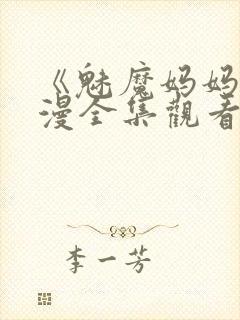 《魅魔妈妈
漫全集觀看
李一芳